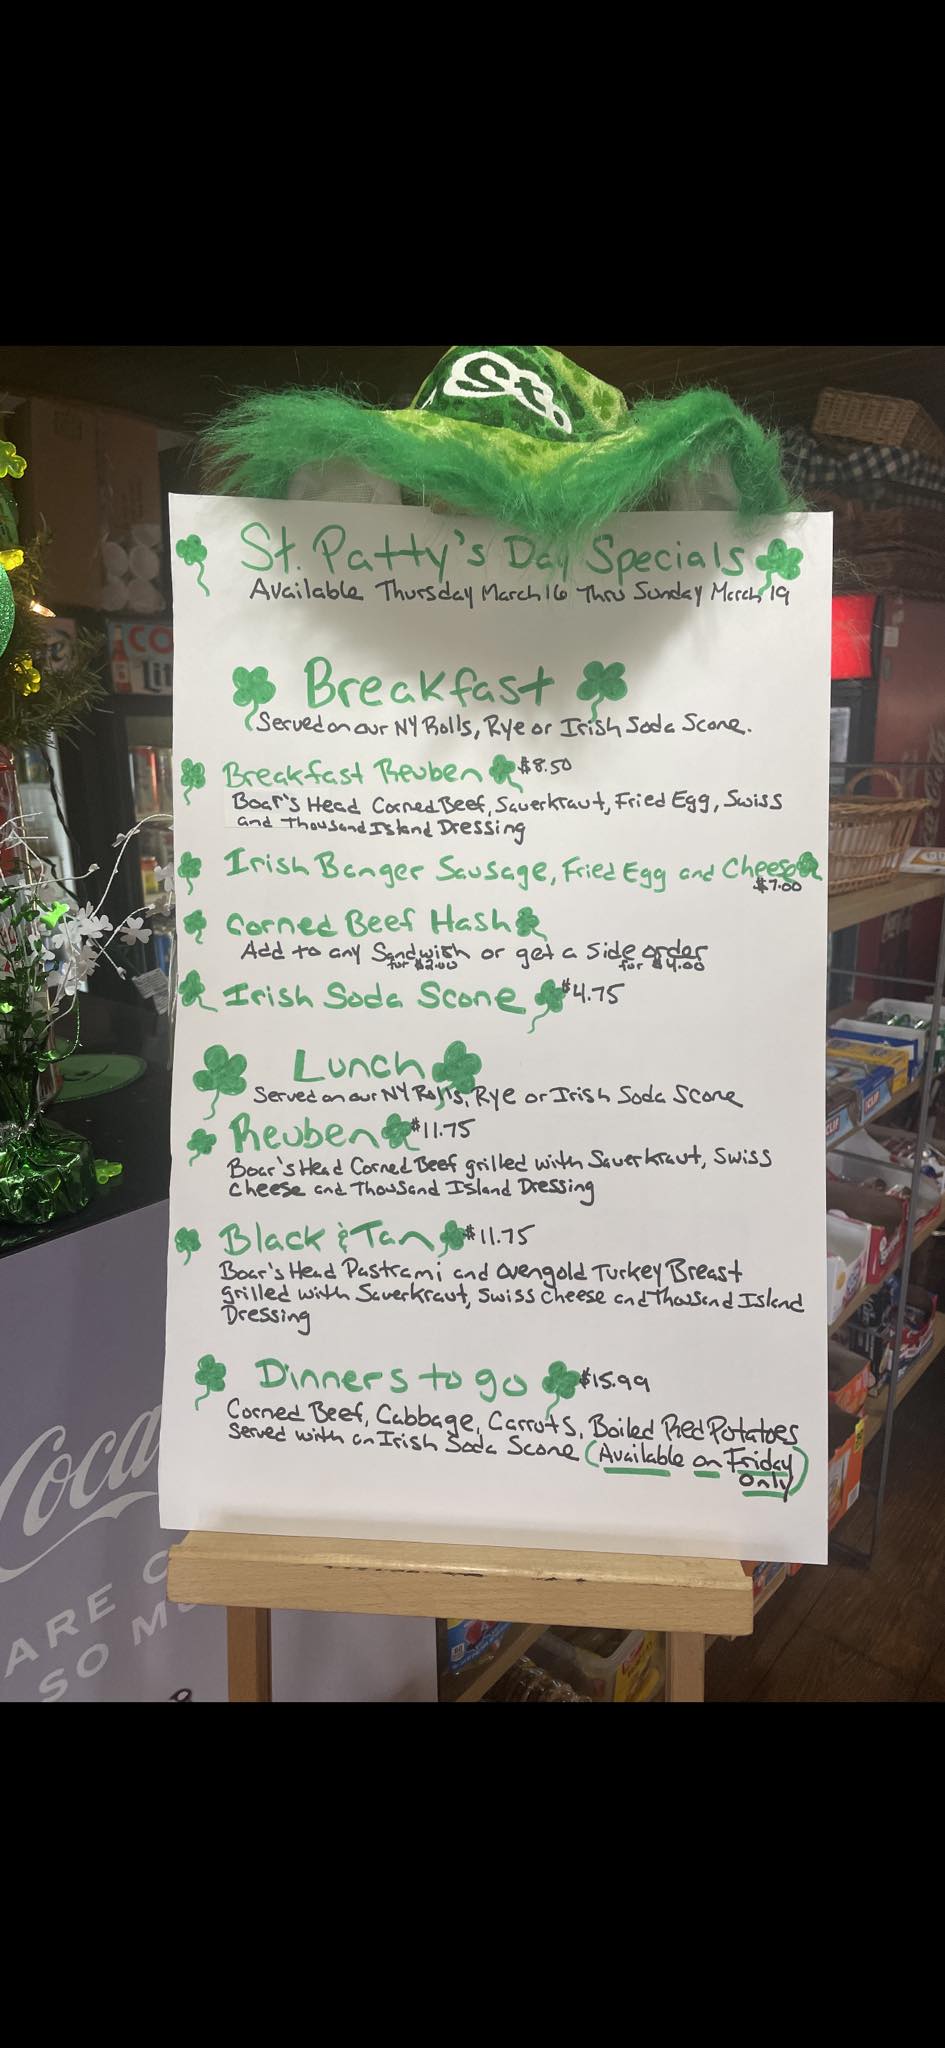 St.
St. Patty's Day Specials
Available Thursday March 16 Thru Sunday March 19
Breakfast
Served on our NY Rolls, Rye or Irish Soda Scone.
Breakfast Reuben $8.50
Boar's Head Corned Beef, Sauerkraut, Fried Egg, Swiss
and Thousand Island Dressing
Irish Banger Sausage, Fried Egg and Cheese
$7.00
Corned Beef Hash
Add to any Sandwish or get a side order
for $2.00 for $4.00
Irish Soda Scone $4.75
Lunch
Served on our NY Rolls, Rye or Irish Soda Scone
Reuben $11.75
Boar's Head Corned Beef grilled with Sauerkraut, Swiss
Cheese and Thousand Island Dressing
Black & Tan $11.75
Boar's Head Pastrami and Ovengold Turkey Breast
grilled with Sauerkraut, Swiss Cheese and Thousand Island
Dressing
Dinners to go $15.99
Corned Beef, Cabbage, Carrots, Boiled Red Potatoes
served with an Irish Soda Scone (Available on Friday
Only)
Coca
ARE
SO